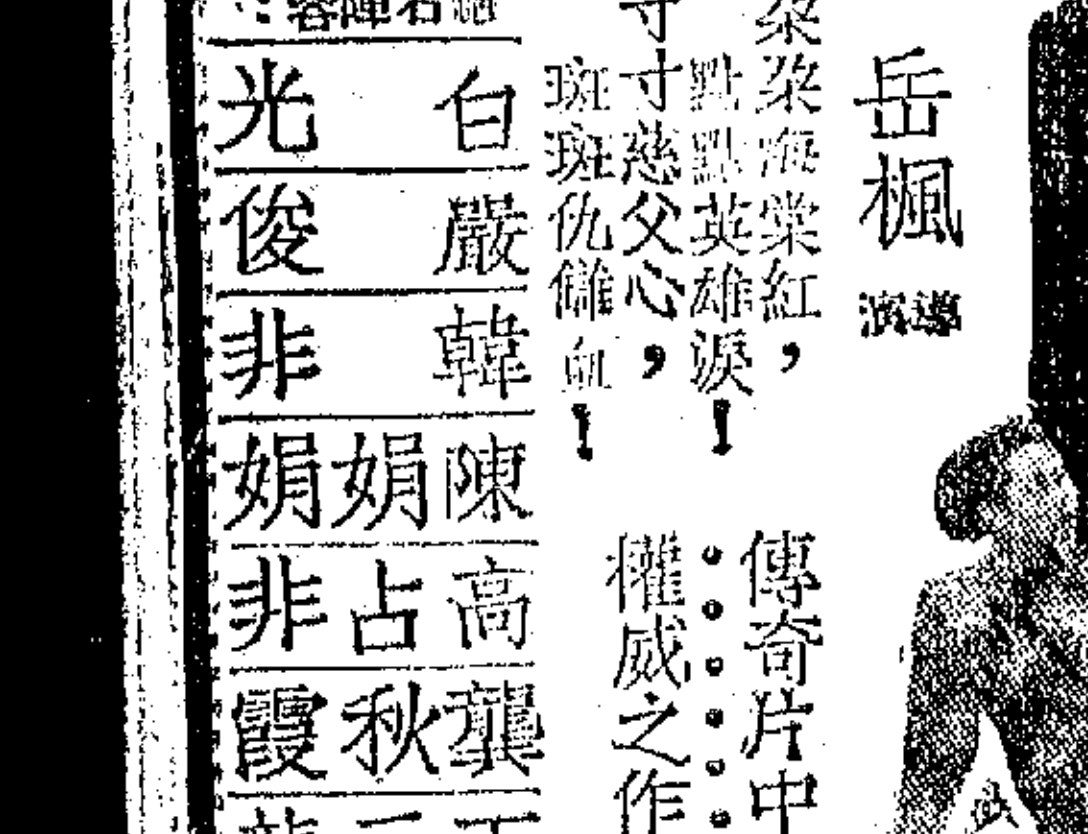 岳楓
導演
朶朶海棠紅，
點點英雄淚！
寸寸慈父心，
斑斑仇讎血！
傳奇片中
權威之作
名陣容：
白光
嚴俊
韓非
陳娟娟
高占非
龔秋霞